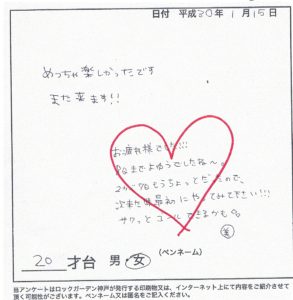 日付 平成20年1月15日
めっちゃ楽しかったです
また来ます!!
お疲れ様でした!!!
までよゆうでしたね〜。
もうちょっとだったので、
次また最初にやってみて下さい!!!
サクッとゴールできるかも。
20才台 男・女
(ペンネーム)
当アンケートはロックガーデン神戸が発行する印刷物又は、インターネット上にて内容をご紹介させて
頂く可能性がございます。ペンネーム又は匿名をご記入ください。